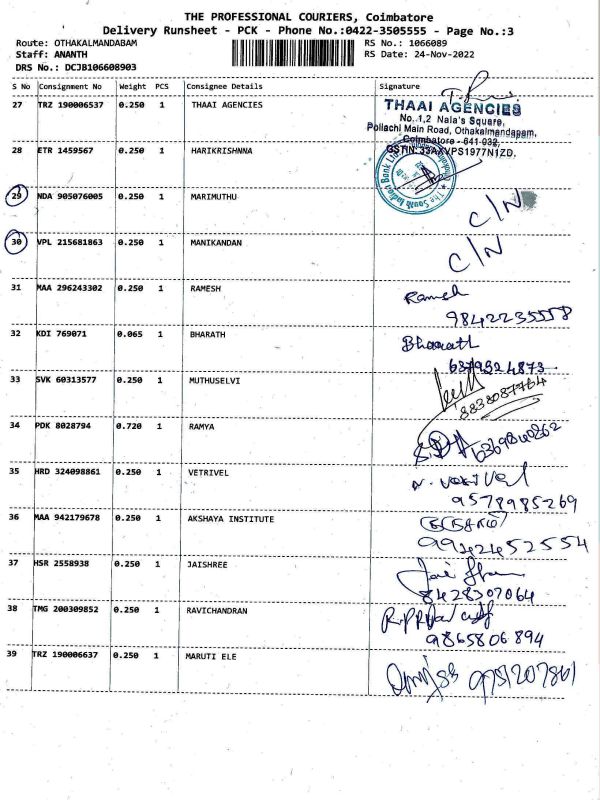 THE PROFESSIONAL COURIERS, Coimbatore
Delivery Runsheet - PCK - Phone No.:0422-3505555 - Page No.:3
Route: OTHAKALMANDABAM
Staff: ANANTH
DRS No.: DCJB106608903
RS No.: 1066089
RS Date: 24-Nov-2022
S No Consignment No Weight PCS Consignee Details Signature
27 TRZ 190006537 0.250 1 THAAI AGENCIES
THAAI AGENCIES
No. 1,2 Nala's Square,
Pollachi Main Road, Othakalmandapam,
Coimbatore - 641 032,
GSTIN: 33AXVPS1977N1ZD.
28 ETR 1459567 0.250 1 HARIKRISHNNA
The South Indian Bank Ltd
29 NDA 905076005 0.250 1 MARIMUTHU C/N
30 VPL 215681863 0.250 1 MANIKANDAN C/N
31 MAA 296243302 0.250 1 RAMESH Ramesh
9842235558
32 KDI 769071 0.065 1 BHARATH Bharath
6379324873
33 SVK 60313577 0.250 1 MUTHUSELVI
8838087764
34 PDK 8028794 0.720 1 RAMYA
35 HRD 324098861 0.250 1 VETRIVEL
9578985269
36 MAA 942179678 0.250 1 AKSHAYA INSTITUTE
9942452554
37 HSR 2558938 0.250 1 JAISHREE
8428307064
38 TMG 200309852 0.250 1 RAVICHANDRAN
9865806894
39 TRZ 190006637 0.250 1 MARUTI ELE
9751207861